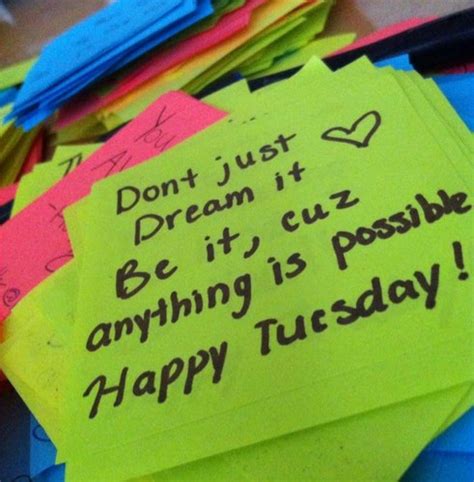 Dont just
Dream it
Be it, cuz
anything is possible
Happy Tuesday!
You